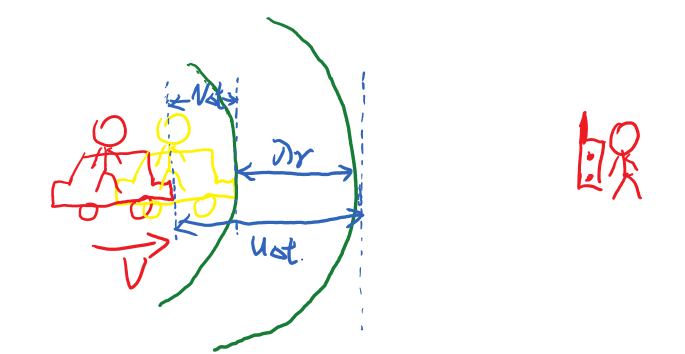 VΔt
λr
uΔt.
V